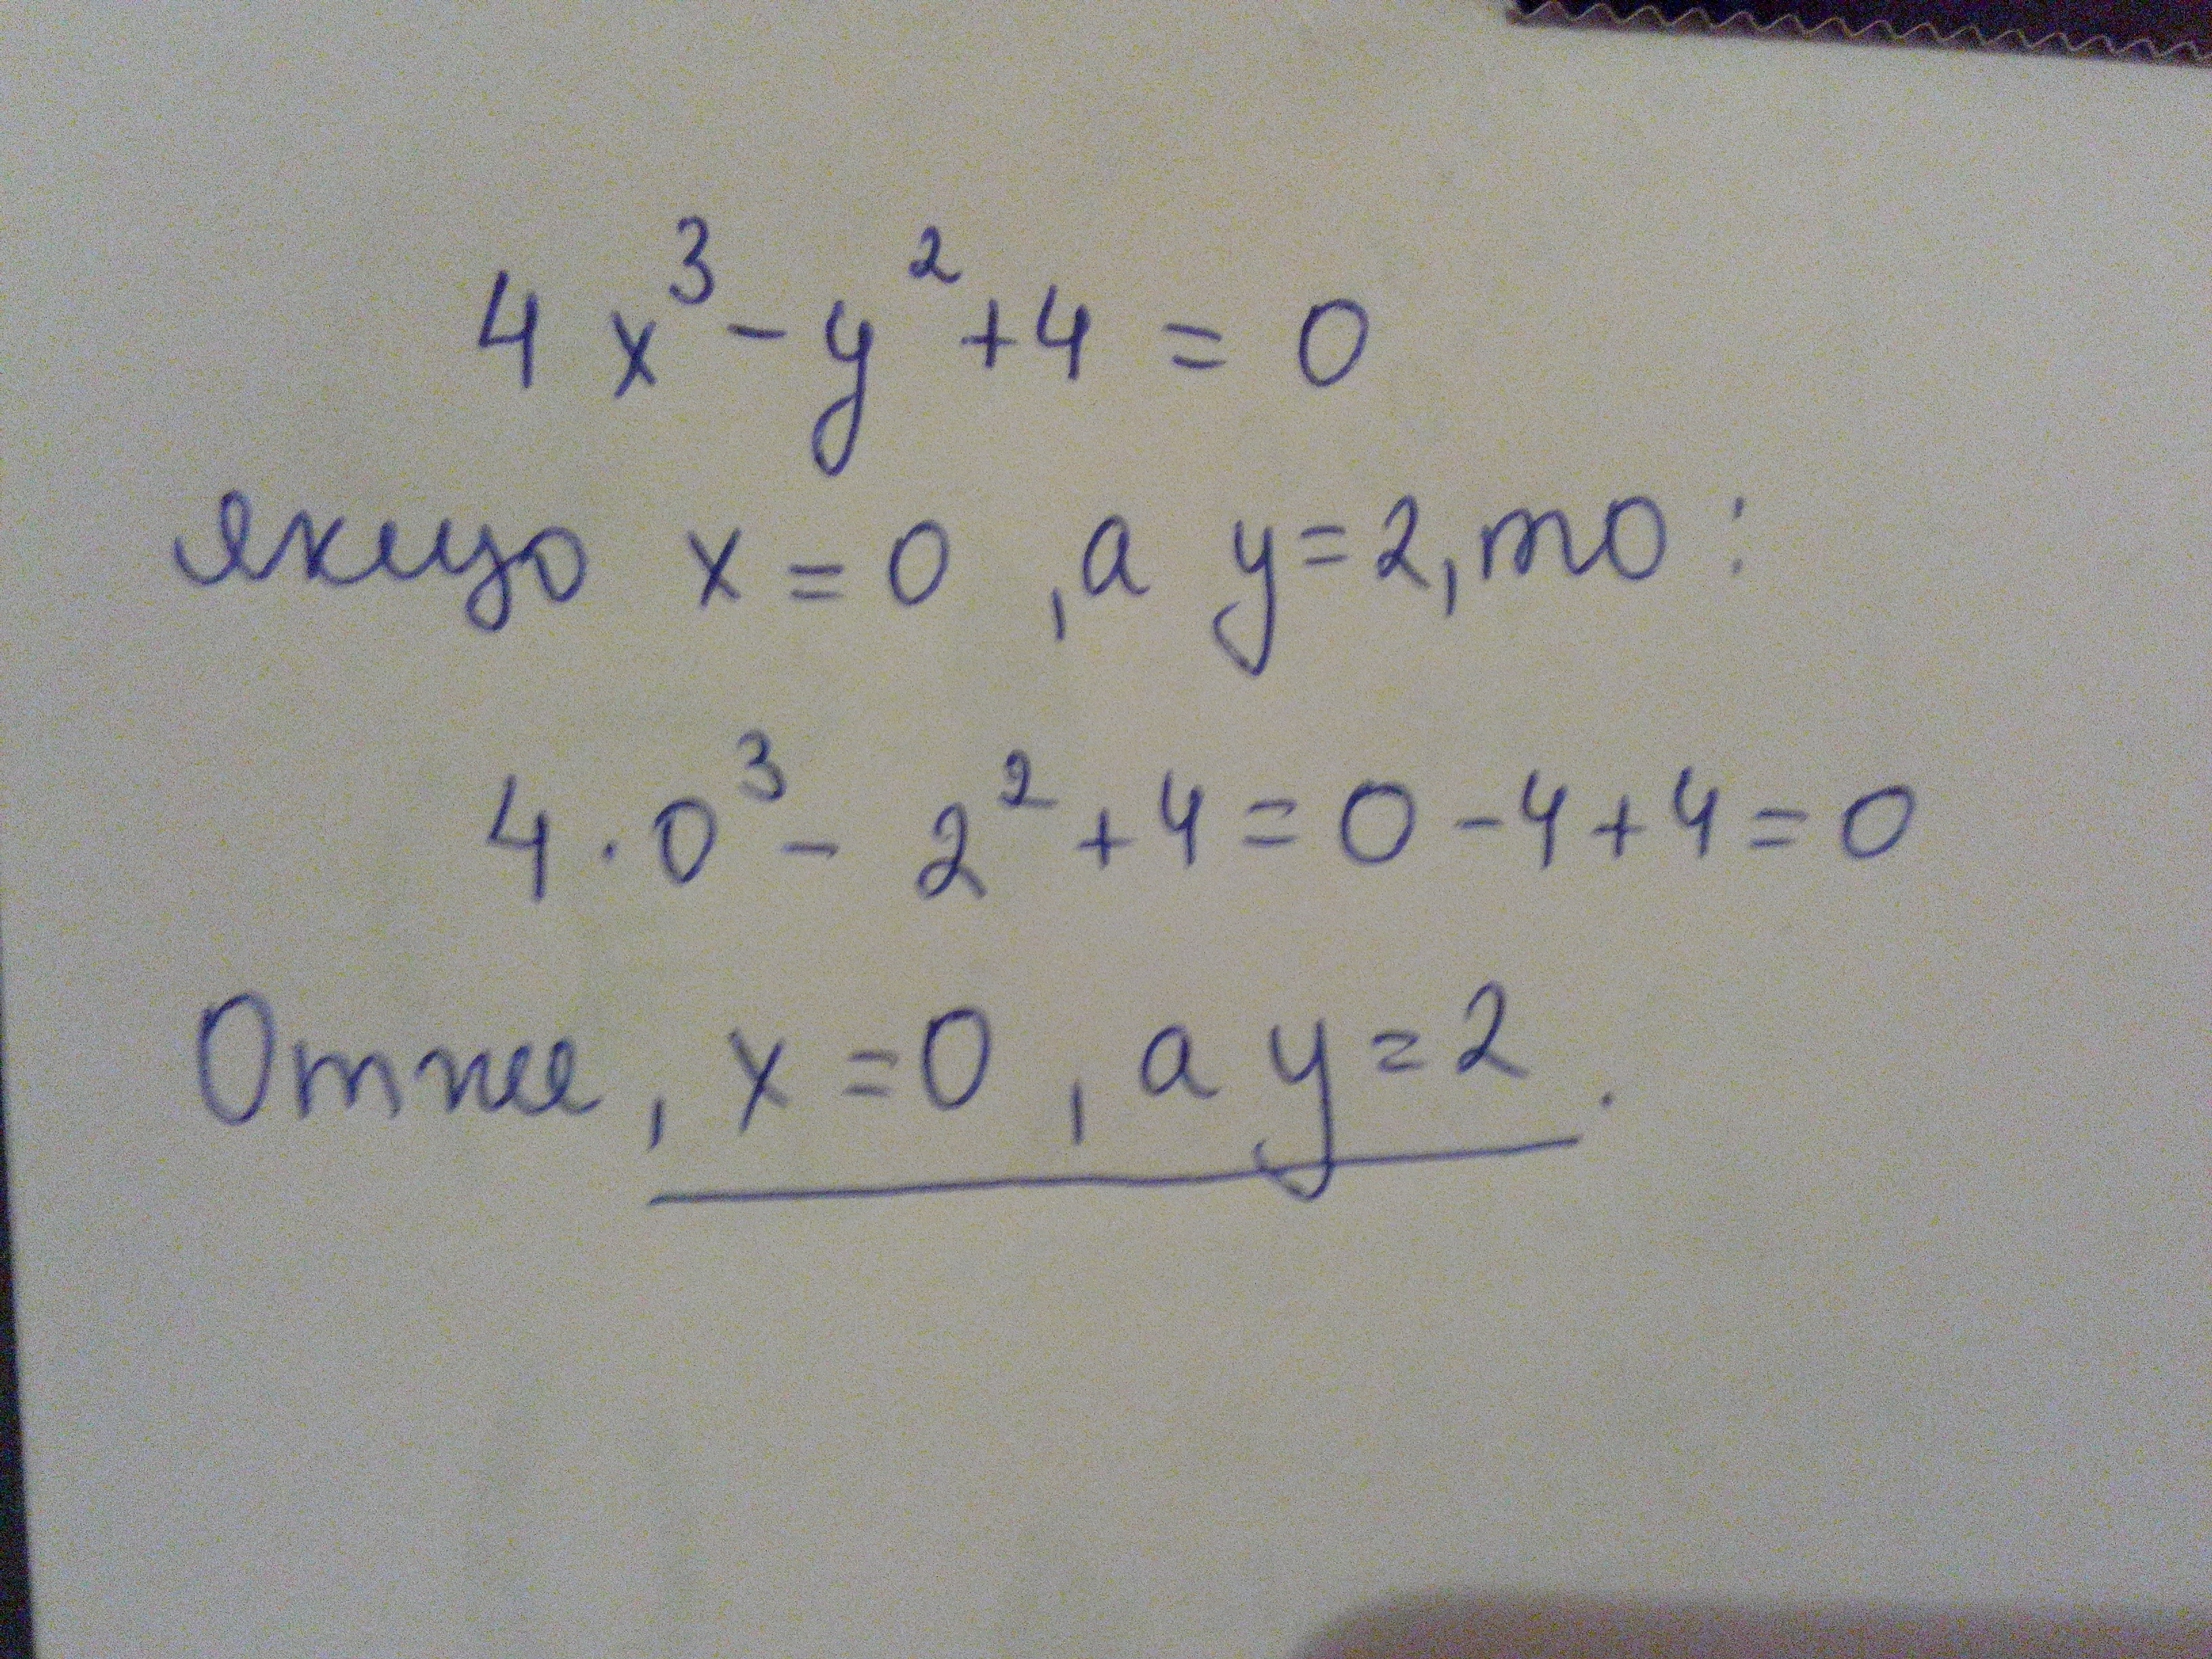 4x³-y²+4 = 0
якщо x = 0 , а y=2, то :
4 · 0³ - 2² + 4 = 0 - 4 + 4 = 0
Отже, x = 0 , а y = 2 .